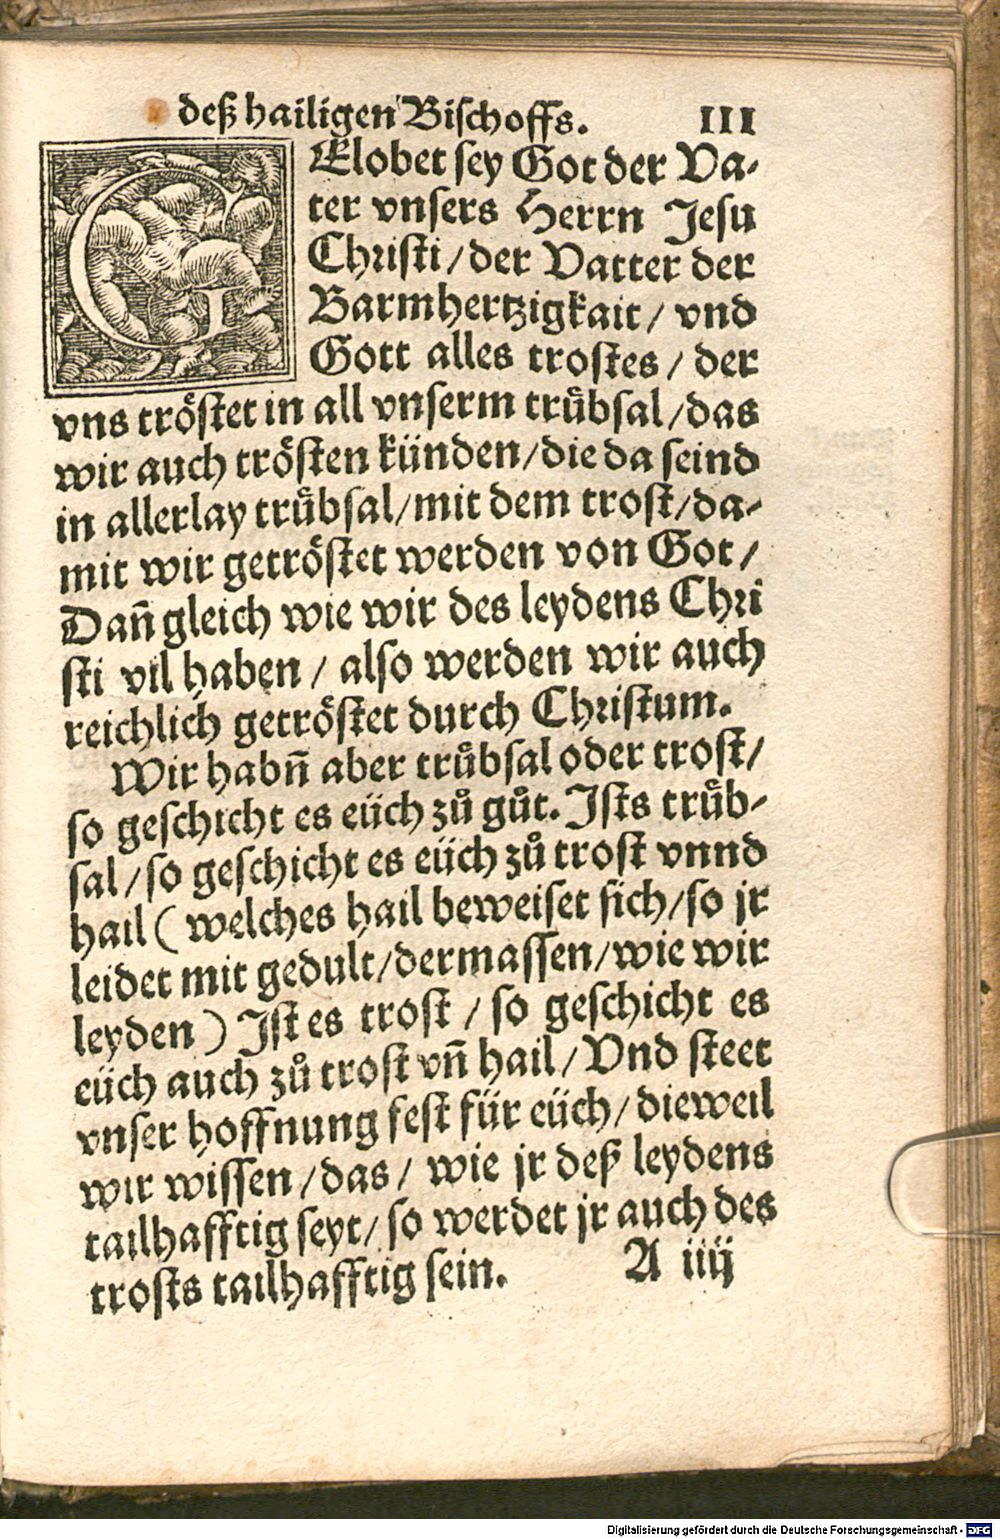 deß hailigen Bischoffs. III
GElobet sey Got der Va-
ter vnsers Herrn Jesu
Christi / der Vatter der
Barmhertzigkait / vnd
Gott alles trostes / der
vns tröstet in all vnserm trůbsal / das
wir auch trösten künden / die da seind
in allerlay trůbsal / mit dem trost / da-
mit wir getröstet werden von Got /
Dañ gleich wie wir des leydens Chri
sti vil haben / also werden wir auch
reichlich getröstet durch Christum.
Wir habñ aber trůbsal oder trost /
so geschicht es eüch zů gůt. Ists trůb-
sal / so geschicht es eüch zů trost vnnd
hail ( welches hail beweiset sich / so jr
leidet mit gedult / dermassen / wie wir
leyden ) Ist es trost / so geschicht es
eüch auch zů trost vñ hail / Vnd steet
vnser hoffnung fest für eüch / dieweil
wir wissen / das / wie jr deß leydens
tailhafftig seyt / so werdet jr auch des
trosts tailhafftig sein. A iiij
Digitalisierung gefördert durch die Deutsche Forschungsgemeinschaft - DFG